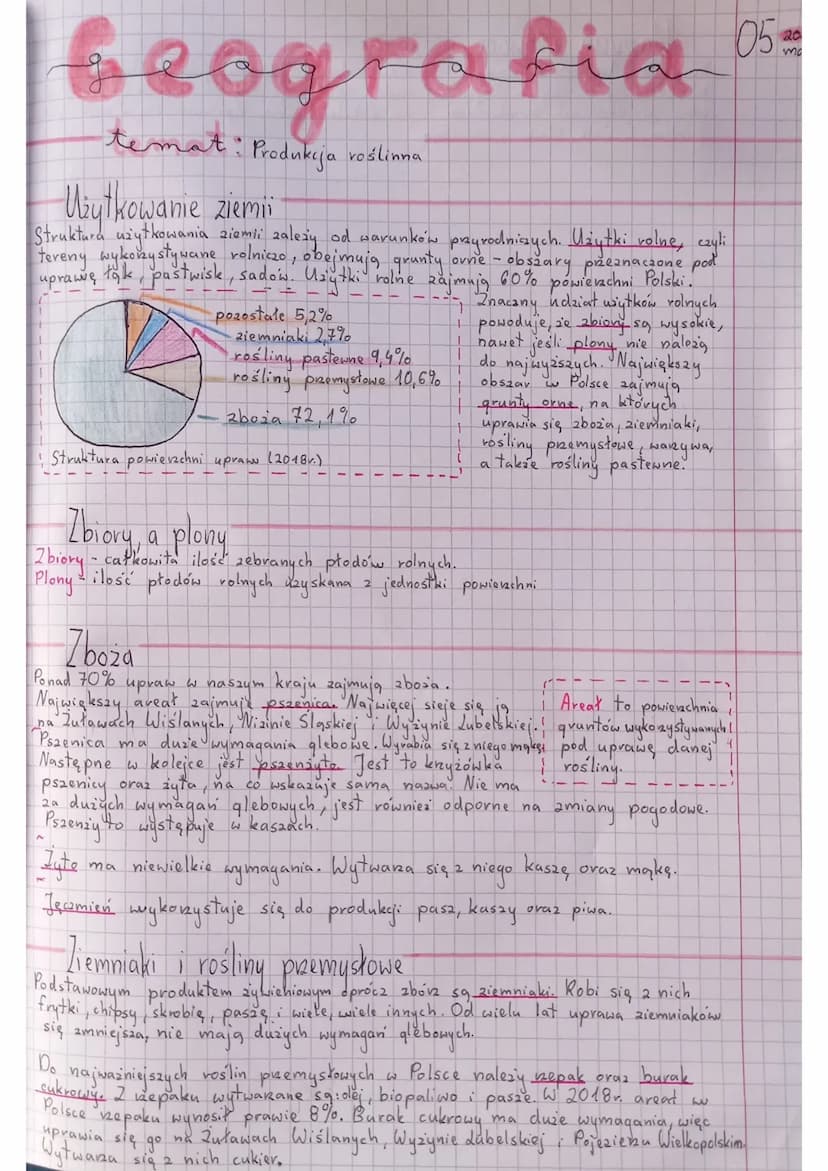 Geografia
geografia
05
temat: Produkcja roślinna
Użytkowanie ziemii
Struktura użytkowania ziemii zależy od warunków przyrodniczych. Użytki rolne, czyli
tereny wykorzystywane rolniczo, obejmują grunty orne - obszary przeznaczone pod
uprawę łąk, pastwisk, sadów. Użytki rolne zajmują 60% powierzchni Polski.
pozostałe 5,2%
ziemniaki 2,7%
rośliny pastewne 9,4%
rośliny przemysłowe 10,6%
zboża 72,1%
Struktura powierzchni upraw (2018r.)
Znaczny udział użytków rolnych
powoduje, że zbiory są wysokie,
nawet jeśli plony nie należą
do najwyższych. Największy
obszar w Polsce zajmują
grunty orne, na których
uprawia się zboża, ziemniaki,
rośliny przemysłowe, warzywa,
a także rośliny pastewne.
Zbiory, a plony
Zbiory - całkowita ilość zebranych płodów rolnych.
Plony - ilość płodów rolnych uzyskana z jednostki powierzchni
Zboża
Ponad 70% upraw w naszym kraju zajmują zboża.
Największy areał zajmuje pszenica. Najwięcej sieje się ją
na Żuławach Wiślanych, Nizinie Śląskiej i Wyżynie Lubelskiej.
Pszenica ma duże wymagania glebowe. Wyrabia się z niego mąkę.
Następne w kolejce jest pszenżyto. Jest to krzyżówka
pszenicy oraz żyta, na co wskazuje sama nazwa. Nie ma
za dużych wymagań glebowych, jest również odporne na zmiany pogodowe.
Pszenżyto występuje w kaszach.
Areał to powierzchnia
gruntów wykorzystywanych
pod uprawę danej
rośliny.
Żyto ma niewielkie wymagania. Wytwarza się z niego kaszę oraz mąkę.
Jęczmień wykorzystuje się do produkcji pasz, kaszy oraz piwa.
Ziemniaki i rośliny przemysłowe
Podstawowym produktem żywieniowym oprócz zbóż są ziemniaki. Robi się z nich
frytki, chipsy, skrobię, paszę i wiele, wiele innych. Od wielu lat uprawa ziemniaków
się zmniejsza, nie mają dużych wymagań glebowych.
Do najważniejszych roślin przemysłowych w Polsce należy rzepak oraz burak
cukrowy. Z rzepaku wytwarzane są: olej, biopaliwo i pasze. W 2018r. areał w
Polsce rzepaku wynosił prawie 8%. Burak cukrowy ma duże wymagania, więc
uprawia się go na Żuławach Wiślanych, Wyżynie Lubelskiej i Pojezierzu Wielkopolskim.
Wytwarza się z nich cukier.